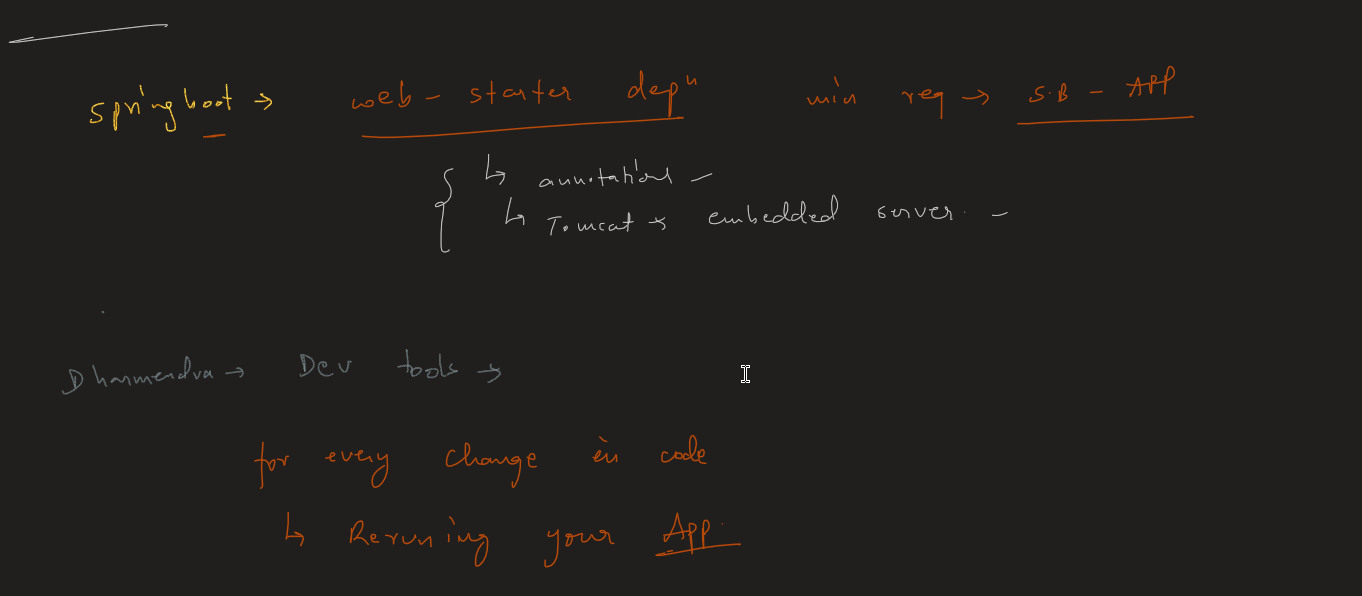 springboot → web - starter depⁿ min req → S.B - APP
↳ annotations -
↳ Tomcat → embedded server. -
Dharmendra → Dev tools →
for every change in code
↳ Reruning your App.